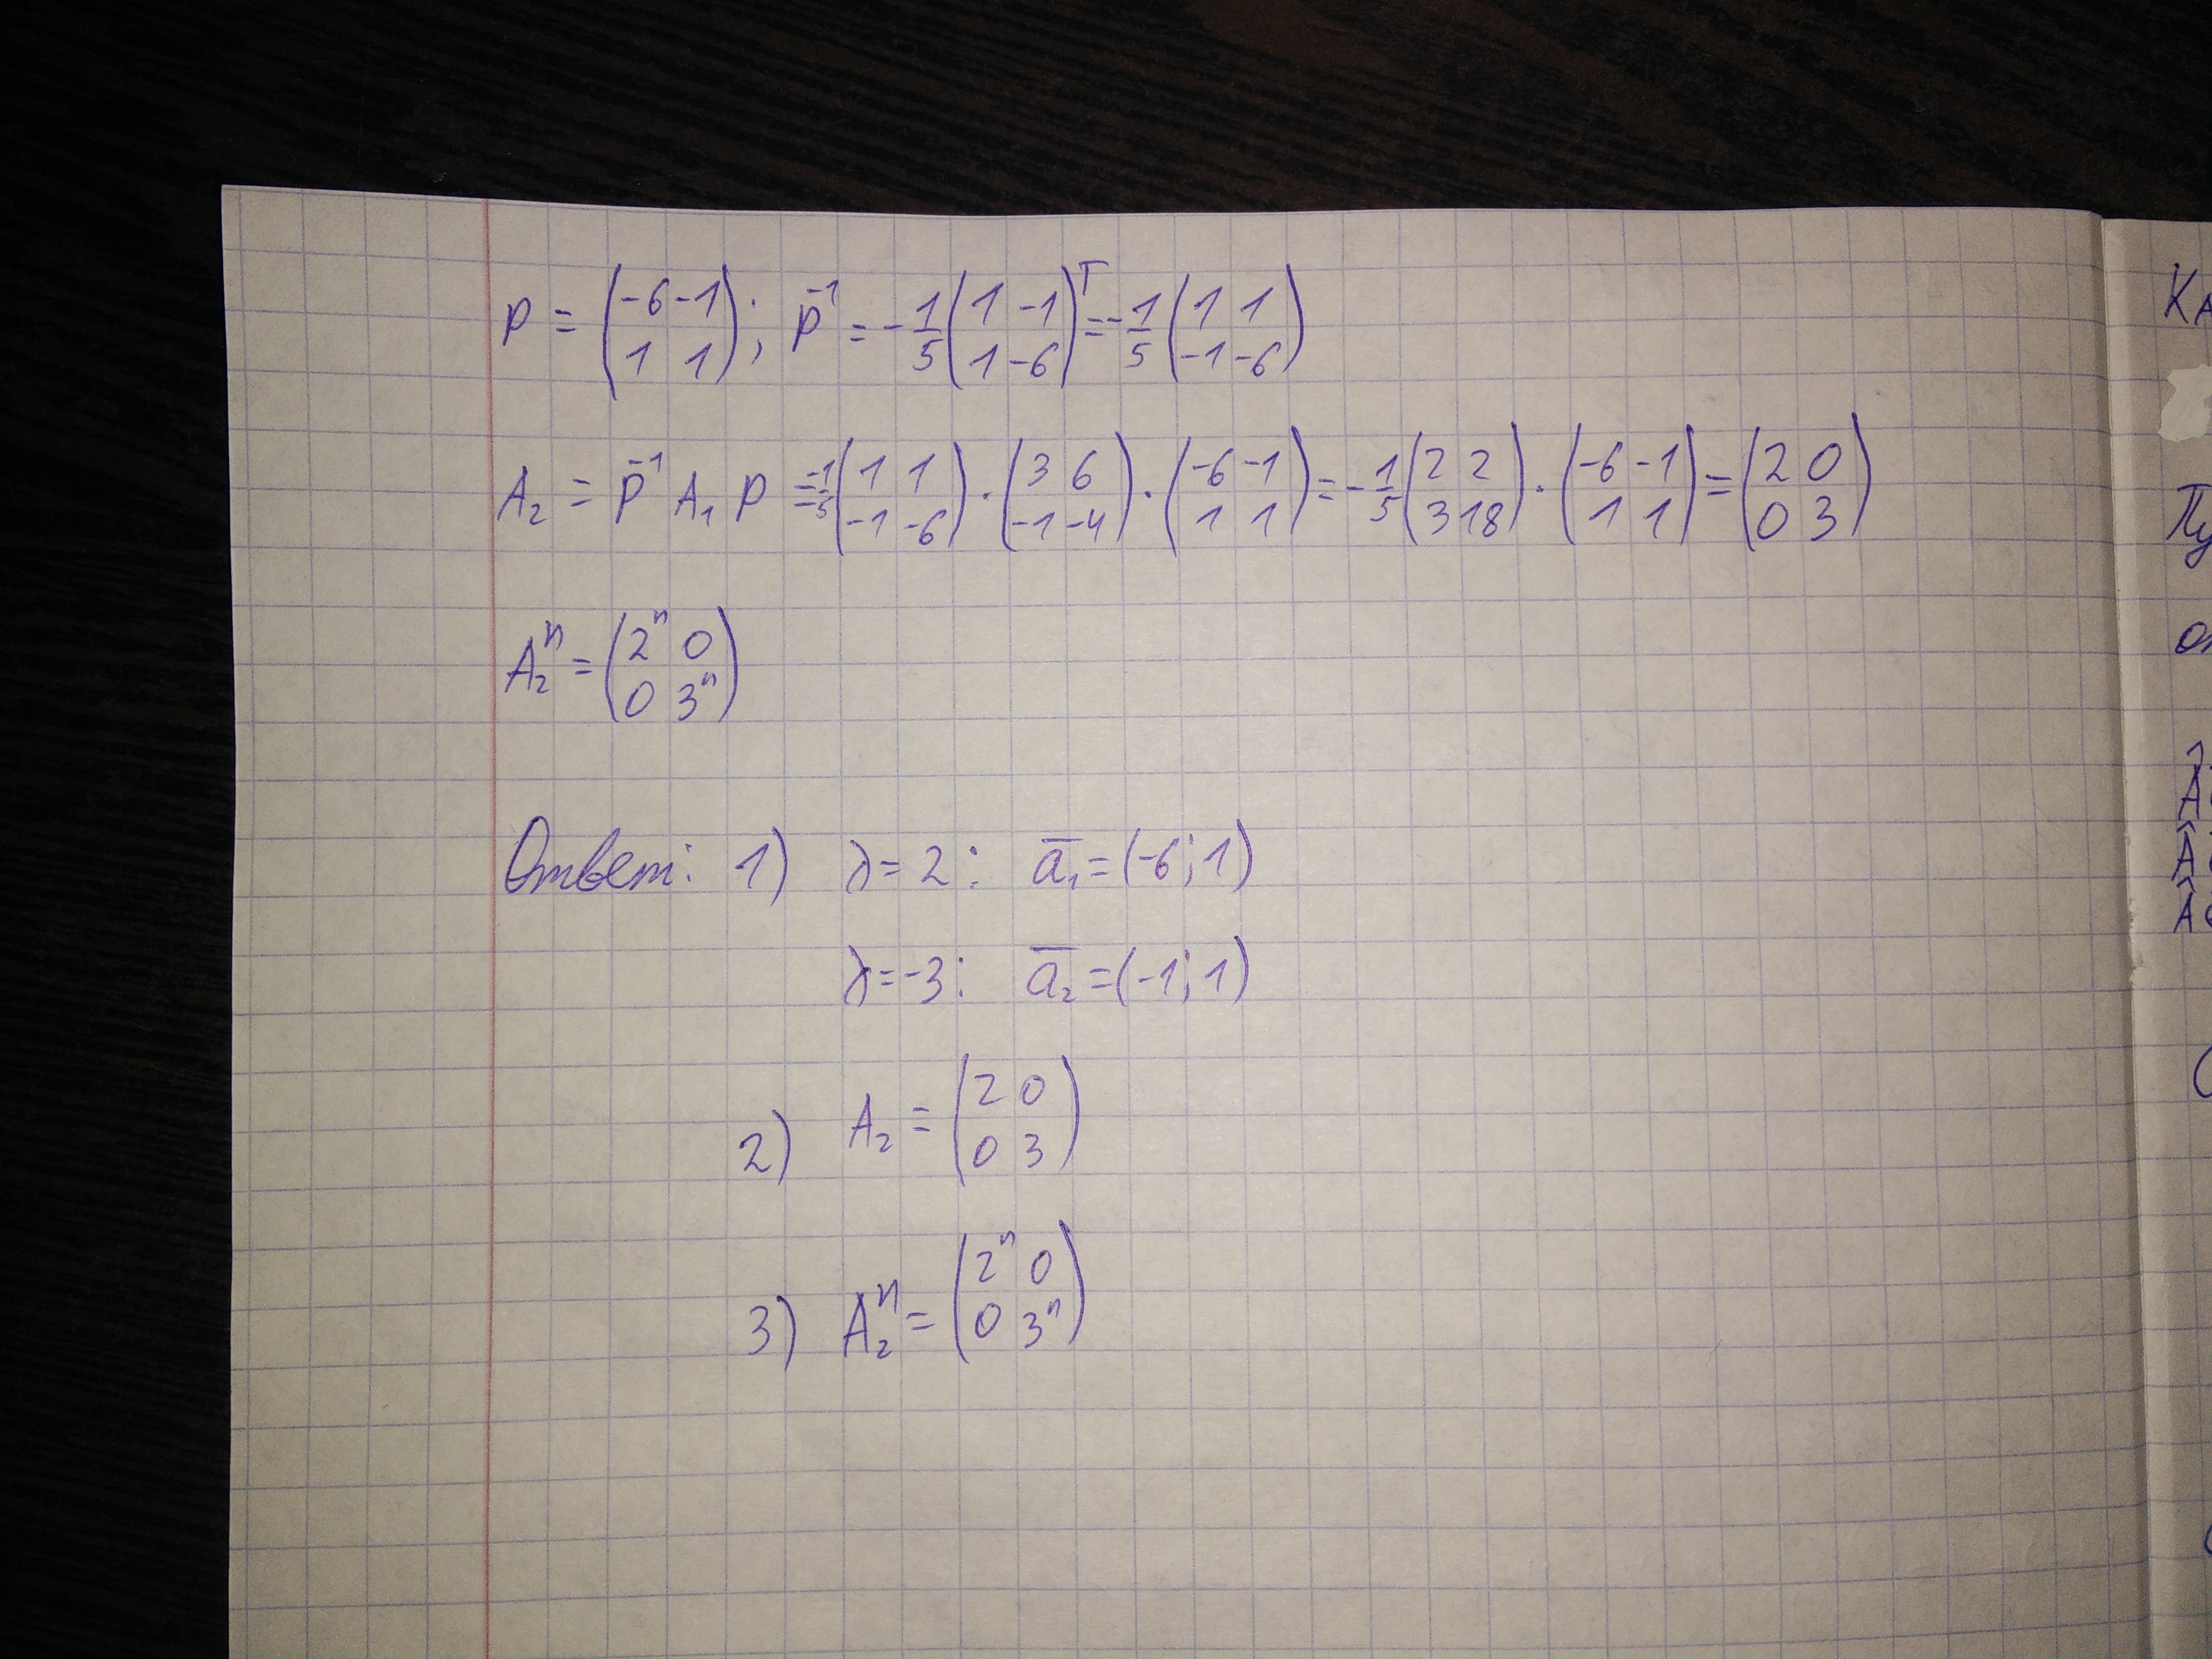 P = (-6 -1; 1 1); P⁻¹ = -1/5 (1 -1; 1 -6)ᵀ = -1/5 (1 1; -1 -6)
A₂ = P⁻¹ A₁ P = -1/5 (1 1; -1 -6) · (3 6; -1 -4) · (-6 -1; 1 1) = -1/5 (2 2; 3 18) · (-6 -1; 1 1) = (2 0; 0 3)
A₂ⁿ = (2ⁿ 0; 0 3ⁿ)
Ответ: 1) λ = 2 : a̅₁ = (-6; 1)
λ = -3 : a̅₂ = (-1; 1)
2) A₂ = (2 0; 0 3)
3) A₂ⁿ = (2ⁿ 0; 0 3ⁿ)